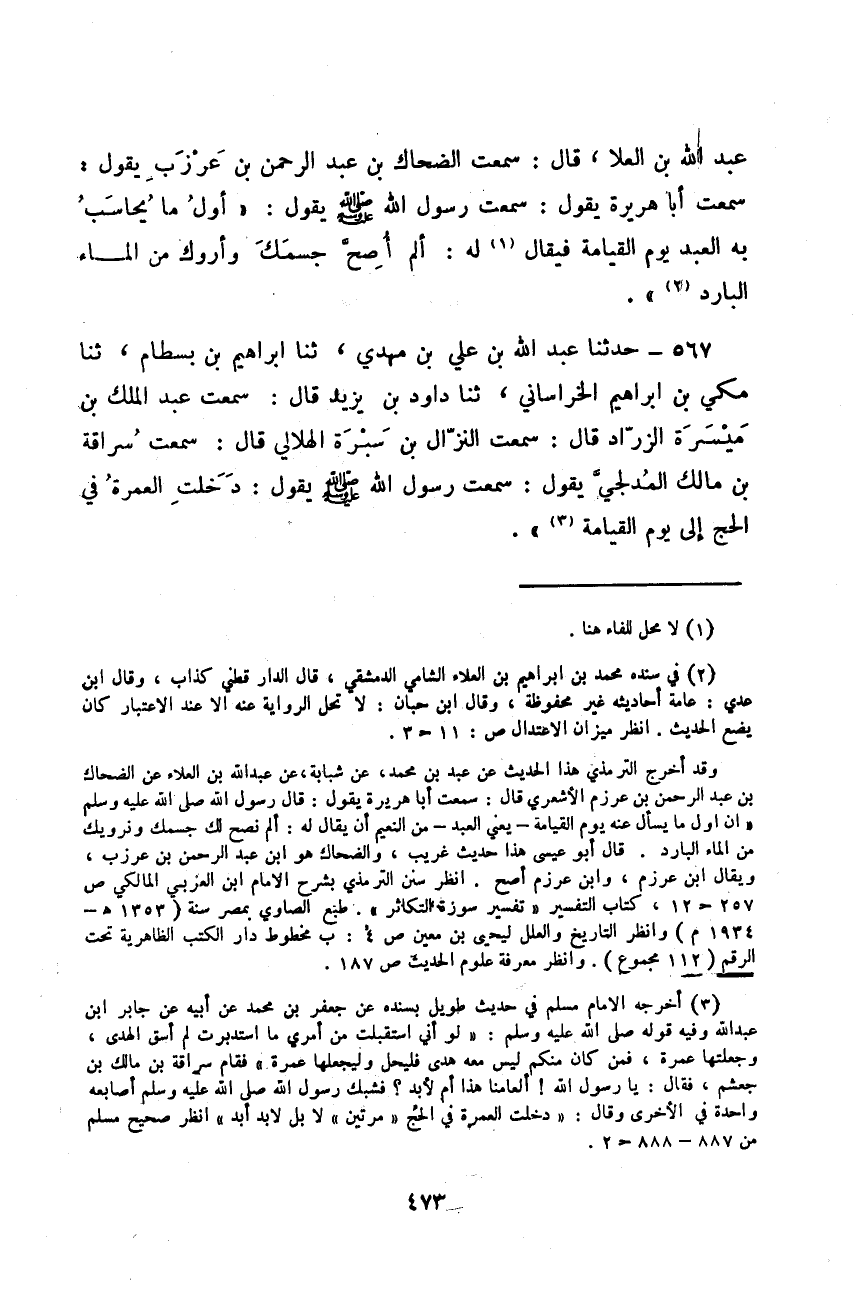 عبد الله بن العلا ، قال : سمعت الضحاك بن عبد الرحمن بن عَرْزَب يقول :
سمعت أبا هريرة يقول : سمعت رسول الله ﷺ يقول : « أولُ ما يُحاسَبُ
به العبد يوم القيامة فيقال (١) له : ألم أُصِحَّ جسمَكَ وأروك من المـــاء
البارد (٢) » .
٥٦٧ – حدثنا عبد الله بن علي بن مهدي ، ثنا ابراهيم بن بسطام ، ثنا
مكي بن ابراهيم الخراساني ، ثنا داود بن يزيد قال : سمعت عبد الملك بن
مَيْسَرَة الزرّاد قال : سمعت النزّال بن سَبْرَة الهلالي قال : سمعت سُراقة
بن مالك المُدلجيَّ يقول : سمعت رسول الله ﷺ يقول : دَخَلتِ العمرةُ في
الحج إلى يوم القيامة (٣) » .
(١) لا محل للفاء هنا .
(٢) في سنده محمد بن ابراهيم بن العلاء الشامي الدمشقي ، قال الدار قطني كذاب ، وقال ابن
عدي : عامة أحاديثه غير محفوظة ، وقال ابن حبان : لا تحل الرواية عنه الا عند الاعتبار كان
يضع الحديث . انظر ميزان الاعتدال ص : ١١ ح ٣ .
وقد أخرج الترمذي هذا الحديث عن عبد بن محمد، عن شبابة،عن عبدالله بن العلاء عن الضحاك
بن عبد الرحمن بن عرزم الأشعري قال : سمعت أبا هريرة يقول : قال رسول الله صلى الله عليه وسلم
« ان اول ما يسأل عنه يوم القيامة – يعني العبد – من النعيم أن يقال له : ألم نصح لك جسمك ونرويك
من الماء البارد . قال أبو عيسى هذا حديث غريب ، والضحاك هو ابن عبد الرحمن بن عرزب ،
ويقال ابن عرزم ، وابن عرزم أصح . انظر سنن الترمذي بشرح الامام ابن العزبي المالكي ص
٢٥٧ ح ١٢ ، كتاب التفسير « تفسير سورة التكاثر » . طبع الصاوي بمصر سنة ( ١٣٥٣ هـ –
١٩٣٤ م ) وانظر التاريخ والعلل ليحيى بن معين ص ٤ : ب مخطوط دار الكتب الظاهرية تحت
الرقم ( ١١٢ مجموع ) . وانظر معرفة علوم الحديث ص ١٨٧ .
(٣) أخرجه الامام مسلم في حديث طويل بسنده عن جعفر بن محمد عن أبيه عن جابر ابن
عبدالله وفيه قوله صلى الله عليه وسلم : « لو أني استقبلت من أمري ما استدبرت لم أسق الهدى ،
وجعلتها عمرة ، فمن كان منكم ليس معه هدى فليحل وليجعلها عمرة » فقام سراقة بن مالك بن
جعشم ، فقال : يا رسول الله ! ألعامنا هذا أم لأبد ؟ فشبك رسول الله صلى الله عليه وسلم أصابعه
واحدة في الأخرى وقال : « دخلت العمرة في الحج « مرتين » لا بل لابد أبد » انظر صحيح مسلم
من ٨٨٧ – ٨٨٨ ح ٢ .
٤٧٣